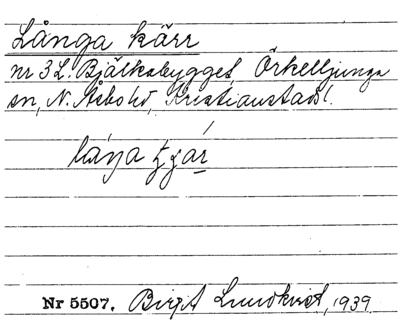 Långa kärr
nr 3 L. Bjälkabygget, Örkelljunga
sn, N. Åsbo hd, Kristianstads l.
Nr 5507. Birgit Lundkvist, 1939